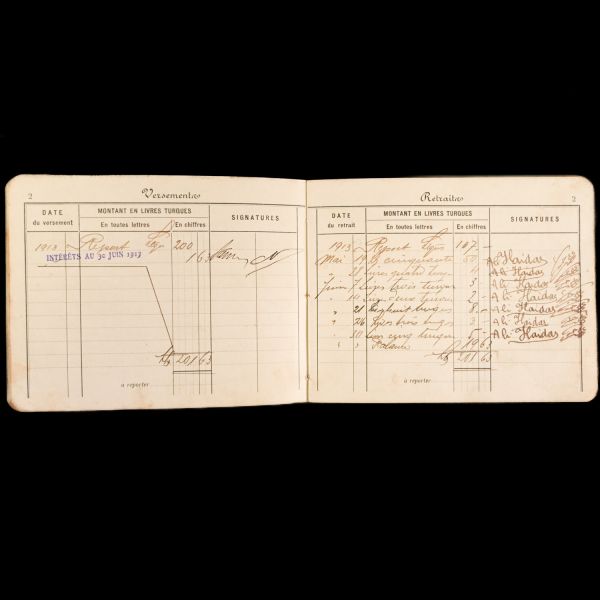 2
Versements
DATE du versement
MONTANT EN LIVRES TURQUES
En toutes lettres
En chiffres
SIGNATURES
1913 Report Ltqs 200
INTÉRÊTS AU 30 JUIN 1913 1 63
Ltq 201 63
à reporter
Retraits
2
DATE du retrait
MONTANT EN LIVRES TURQUES
En toutes lettres
En chiffres
SIGNATURES
1913 Report Ltqs 107 -
Mai 19 cinquante 50 - Ali Haidar
21 quatre 4 Ali Haidar
Juin 7 Livres trois turques 3 - Ali Haidar
14 turques 2 - Ali Haidar
21 huit turques 8 - Ali Haidar
26 Livres trois turques 3 - Ali Haidar
30 cinq turques 5 - Ali Haidar
" " Balance 19 63
Ltq 201 63
à reporter